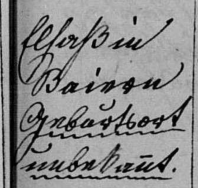 Elsaß in
Baiern
Geburtsort
unbekannt.